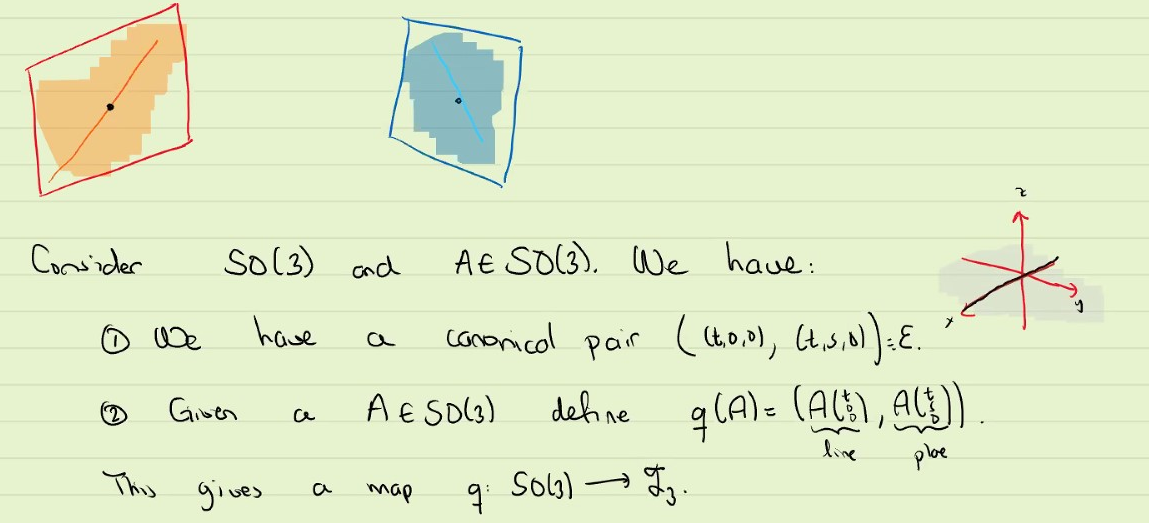 z
Consider SO(3) and A ∈ SO(3). We have:
x
y
① We have a canonical pair ((t,0,0), (t,s,0)) = ε.
② Given a A ∈ SO(3) define q(A) = (A(t 0 0), A(t s 0)).
line
plae
This gives a map q: SO(3) → ℱ₃.